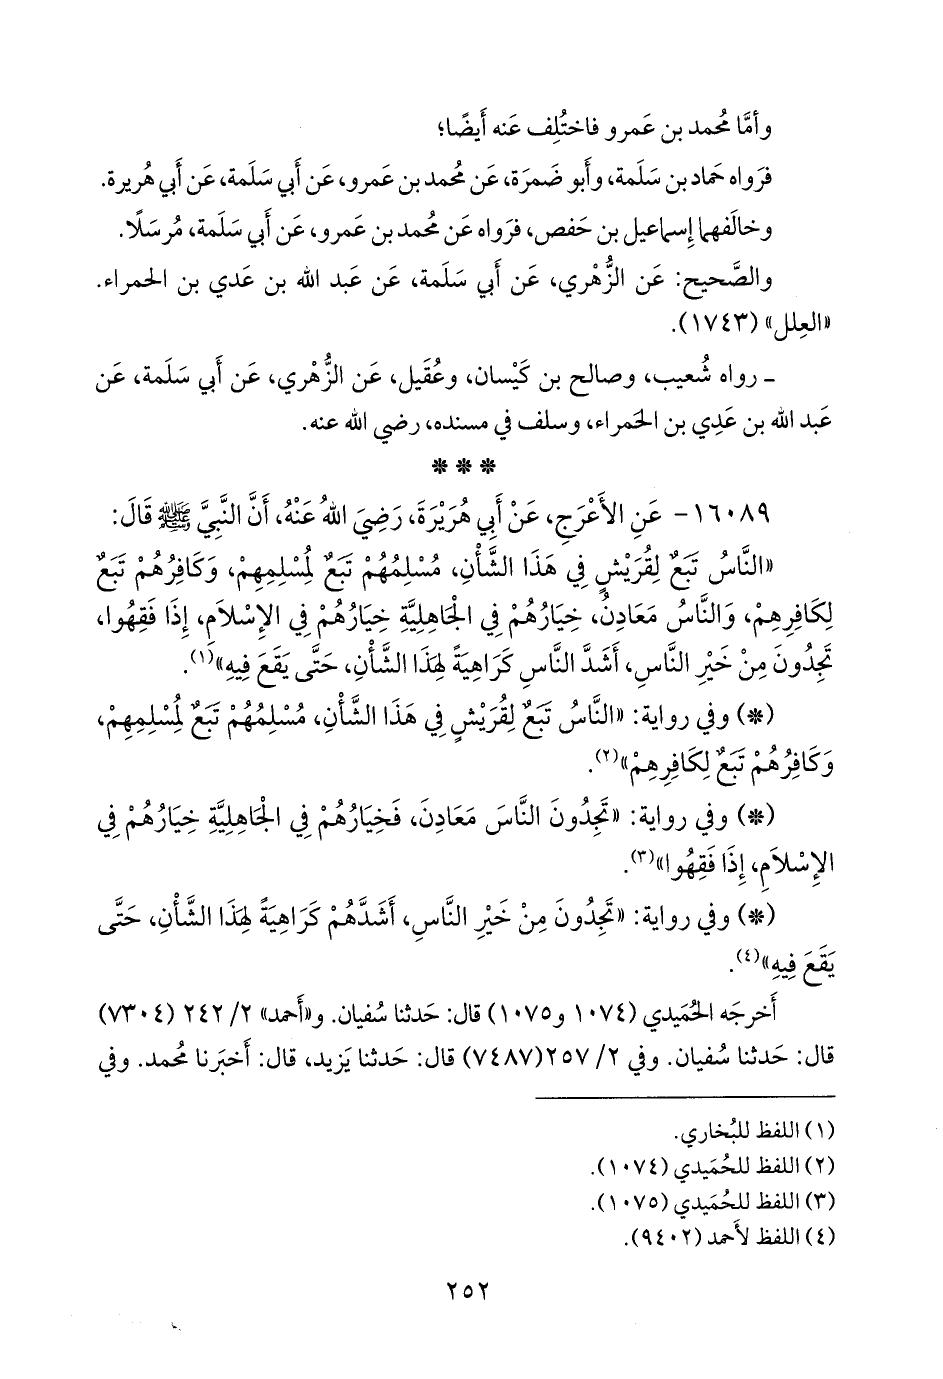 وأمَّا مُحمد بن عَمرو فاختُلِف عَنه أَيضًا؛
فرَواه حَماد بن سَلَمة، وأَبو ضَمرَة، عَن مُحمد بن عَمرو، عَن أَبي سَلَمة، عَن أَبي هُريرة.
وخالَفهما إِسماعيل بن حَفص، فرَواه عَن مُحمد بن عَمرو، عَن أَبي سَلَمة، مُرسَلًا.
والصَّحيح: عَن الزُّهْري، عَن أَبي سَلَمة، عَن عَبد الله بن عَدي بن الحمراء.
«العِلل» (١٧٤٣).
ـ رواه شُعيب، وصالح بن كَيْسان، وعُقَيل، عَن الزُّهْري، عَن أَبي سَلَمة، عَن
عَبد الله بن عَدِي بن الحَمراء، وسلف في مسنده، رضي الله عنه.
* * *
١٦٠٨٩- عَنِ الأَعْرَجِ، عَنْ أَبِي هُرَيْرَةَ، رَضِيَ اللهُ عَنْهُ، أَنَّ النَّبِيَّ ﷺ قَالَ:
«النَّاسُ تَبَعٌ لِقُرَيْشٍ فِي هَذَا الشَّأْنِ، مُسْلِمُهُمْ تَبَعٌ لِمُسْلِمِهِمْ، وَكَافِرُهُمْ تَبَعٌ
لِكَافِرِهِمْ، وَالنَّاسُ مَعَادِنُ، خِيَارُهُمْ فِي الْجَاهِلِيَّةِ خِيَارُهُمْ فِي الإِسْلَامِ، إِذَا فَقِهُوا،
تَجِدُونَ مِنْ خَيْرِ النَّاسِ، أَشَدَّ النَّاسِ كَرَاهِيَةً لِهَذَا الشَّأْنِ، حَتَّى يَقَعَ فِيهِ»(١).
(*) وفي رواية: «النَّاسُ تَبَعٌ لِقُرَيْشٍ فِي هَذَا الشَّأْنِ، مُسْلِمُهُمْ تَبَعٌ لِمُسْلِمِهِمْ،
وَكَافِرُهُمْ تَبَعٌ لِكَافِرِهِمْ»(٢).
(*) وفي رواية: «تَجِدُونَ النَّاسَ مَعَادِنَ، فَخِيَارُهُمْ فِي الْجَاهِلِيَّةِ خِيَارُهُمْ فِي
الإِسْلَامِ، إِذَا فَقِهُوا»(٣).
(*) وفي رواية: «تَجِدُونَ مِنْ خَيْرِ النَّاسِ، أَشَدَّهُمْ كَرَاهِيَةً لِهَذَا الشَّأْنِ، حَتَّى
يَقَعَ فِيهِ»(٤).
أَخرجَه الحُمَيدي (١٠٧٤ و١٠٧٥) قال: حَدثنا سُفيان. و«أَحمد» ٢/ ٢٤٢ (٧٣٠٤)
قال: حَدثنا سُفيان. وفي ٢/ ٢٥٧(٧٤٨٧) قال: حَدثنا يَزيد، قال: أَخبَرنا مُحمد. وفي
(١) اللفظ للبُخاري.
(٢) اللفظ للحُمَيدي (١٠٧٤).
(٣) اللفظ للحُمَيدي (١٠٧٥).
(٤) اللفظ لأَحمد (٩٤٠٢).
٢٥٢